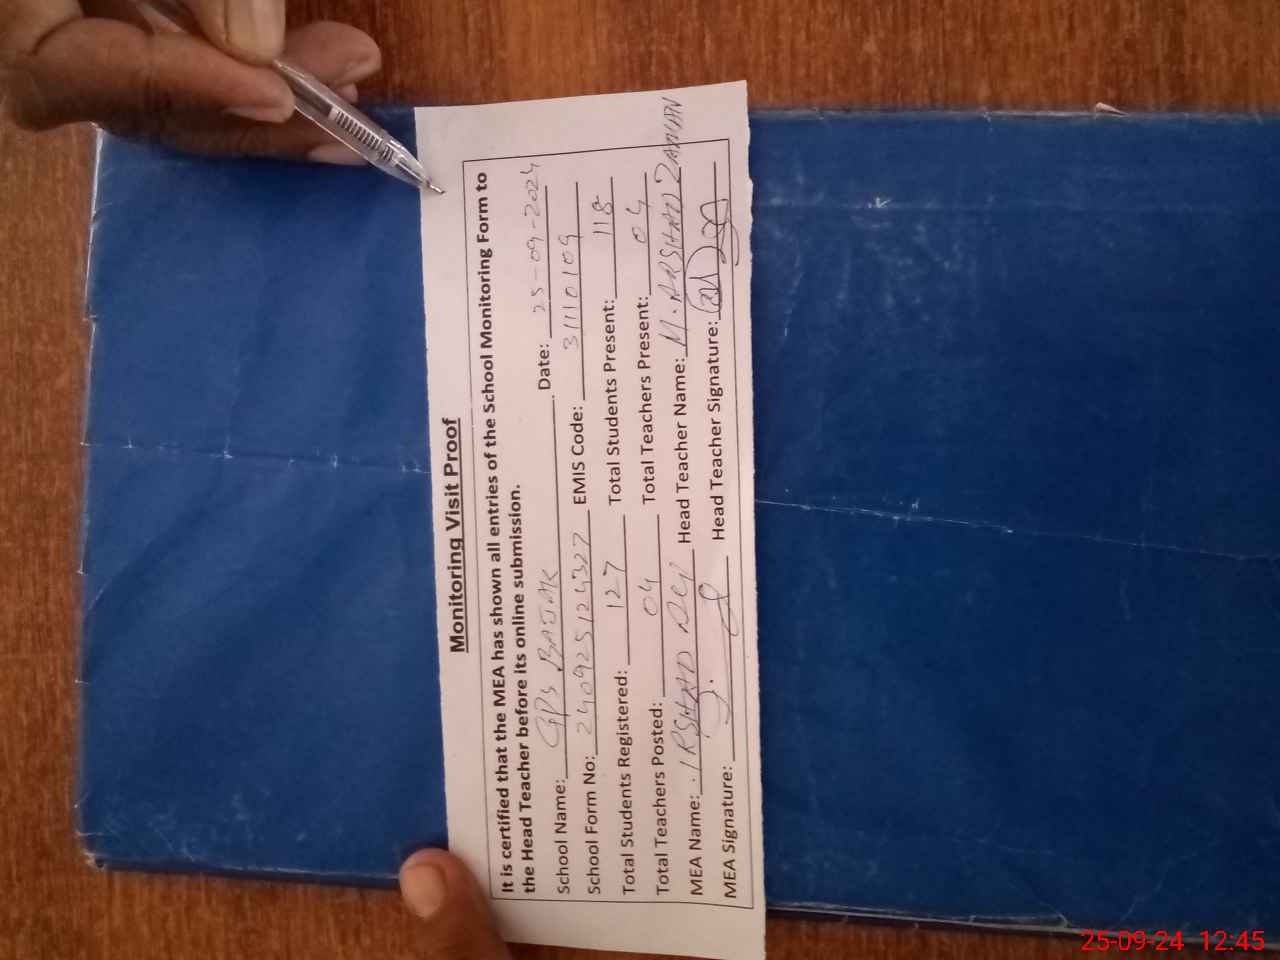 Monitoring Visit Proof
It is certified that the MEA has shown all entries of the School Monitoring Form to
the Head Teacher before its online submission.
School Name: GPS . Date: 25-09-2024
School Form No: 240925124327 EMIS Code: 31110109
Total Students Registered: 127 Total Students Present: 118
Total Teachers Posted: 04 Total Teachers Present: 04
MEA Name: IRSHAD Head Teacher Name: M. ARSHAD ZAMAN
MEA Signature: Head Teacher Signature:
25-09-24 12:45